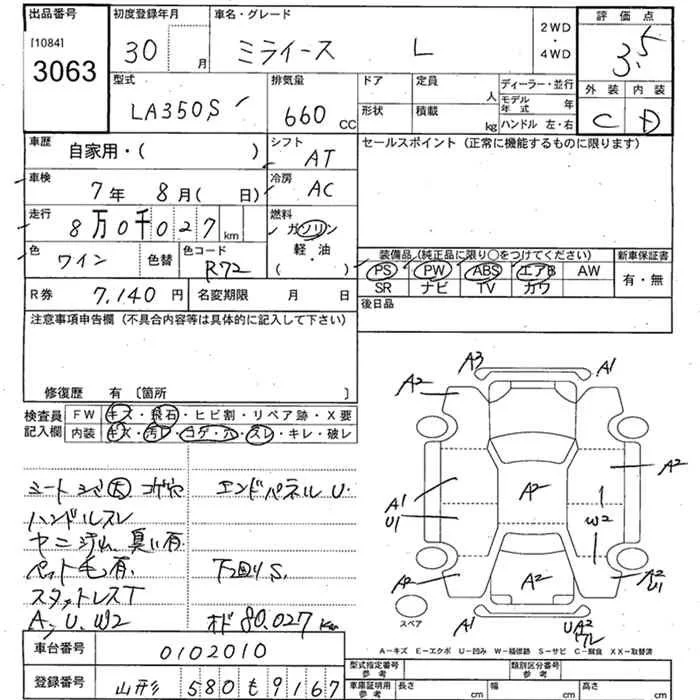 出品番号
[1084]
3063
初度登録年月
30 月
車名・グレード
ミライース L
2WD
・
4WD
評価点
3.5
型式
LA350S
排気量
660 CC
ドア
定員
人
形状
積載
kg
ディーラー・並行
モデル年式 年
ハンドル 左・右
外装 内装
C D
車歴
自家用・( )
シフト
AT
セールスポイント (正常に機能するものに限ります)
車検
7年 8月( 日)
冷房
AC
走行
8万0千027km
燃料
ガソリン
軽・油
( )
色
ワイン
色替
色コード
R72
装備品 (純正品に限り○をつけてください)
新車保証書
PS PW ABS エアB AW
SR ナビ TV カワ
有・無
R券 7,140 円
名変期限 月 日
後日品
注意事項申告欄 (不具合内容等は具体的に記入して下さい)
修復歴 有 〔箇所 〕
検査員記入欄
FW キズ・飛石・ヒビ割・リペア跡・X要
内装 キズ・汚レ・コゲ・穴・スレ・キレ・破レ
シート シミ大 コゲ穴
エンドパネル U.
ハンドルスレ
ヤニ汚れ、臭い有.
ペット毛有.
下回りS.
スタットレスT
A, U, W2
オド 80,027 Km
A3
A1
A2
A2
A1
U1
A2
W2
A2
A2
A2
U1
A1
U A2
スペア
A－キズ E－エクボ U－凹み W－補修跡 S－サビ C－腐食 XX－取替済
車台番号 0102010
登録番号 山形 580 も 9167
型式指定番号
参考
類別区分番号
参考
車庫証明用
参考
長さ cm
幅 cm
高さ cm